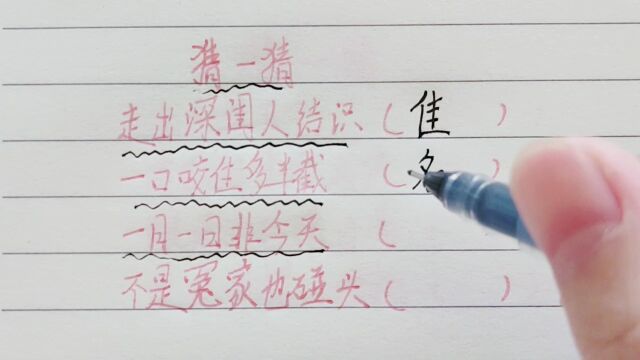 猜一猜
走出深闺人结识（佳 ）
一口咬住多半截（名 ）
一月一日非今天（ ）
不是冤家也碰头（ ）